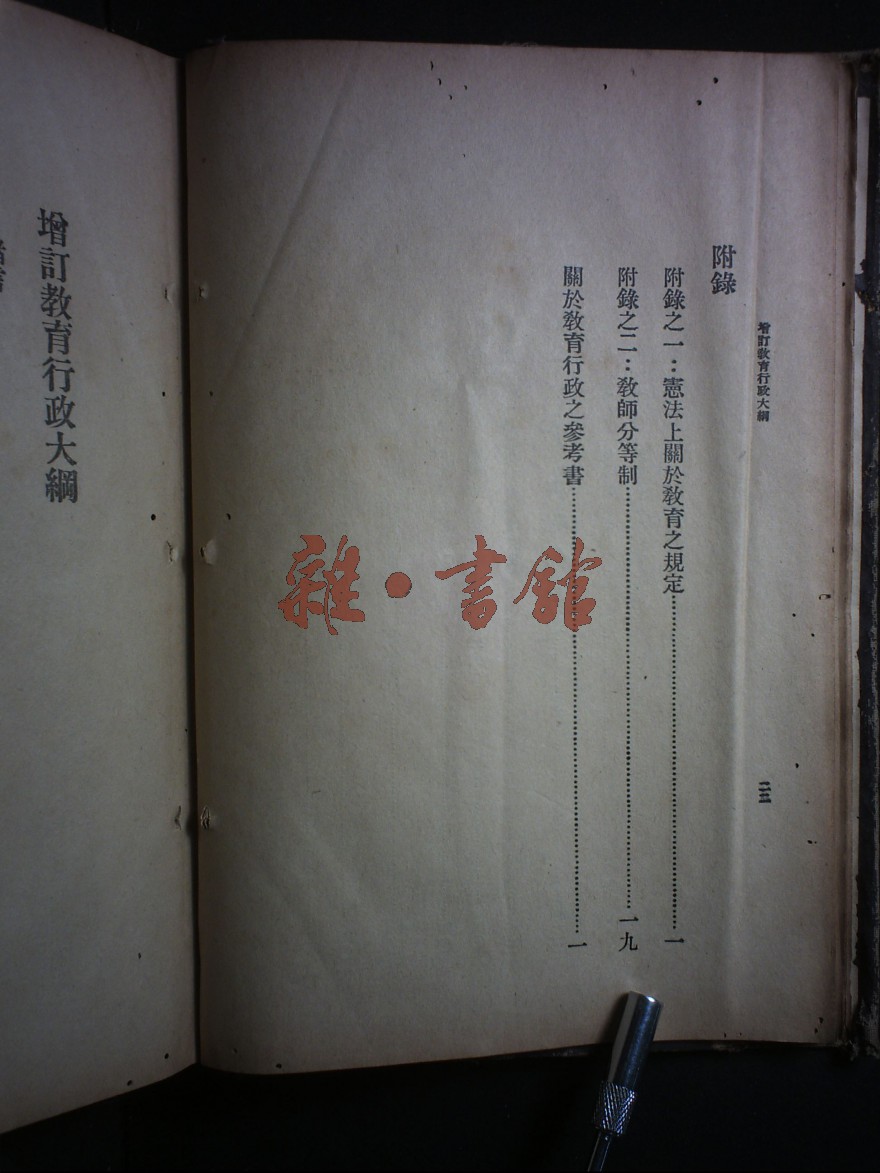 增訂教育行政大綱
二二
附錄
附錄之一：憲法上關於教育之規定……一
附錄之二：教師分等制……一九
關於教育行政之參考書……一
雜·書館
增訂教育行政大綱